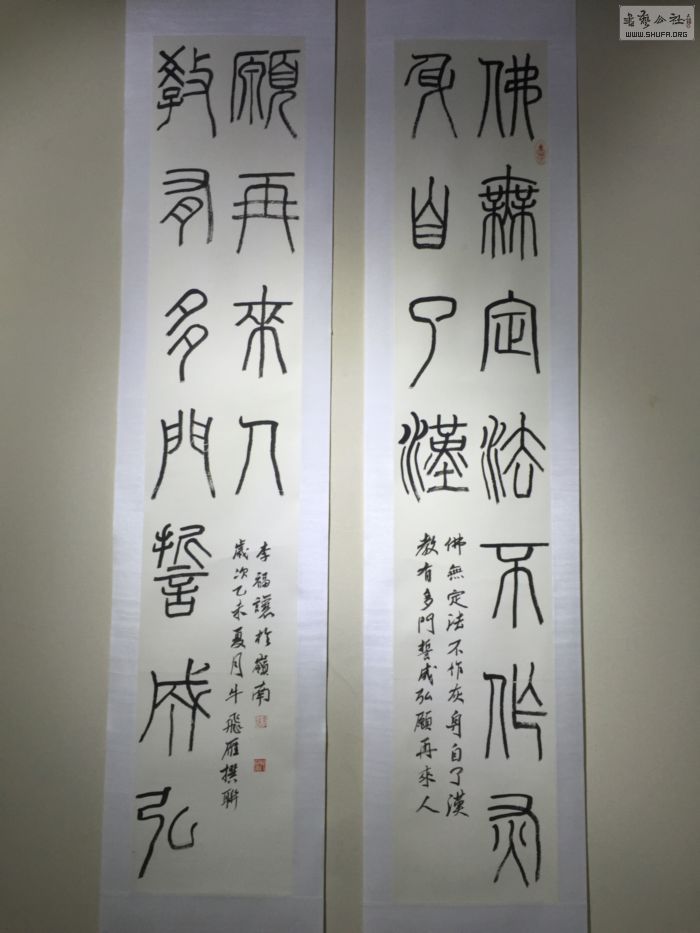 佛無定法不作灰
身自了漢
佛無定法不作灰身自了漢
教有多門誓成弘願再來人
教有多門誓成弘
願再來人
歲次乙未夏月牛飛雁撰聯
李福讓於嶺南
書藝公社
WWW.SHUFA.ORG